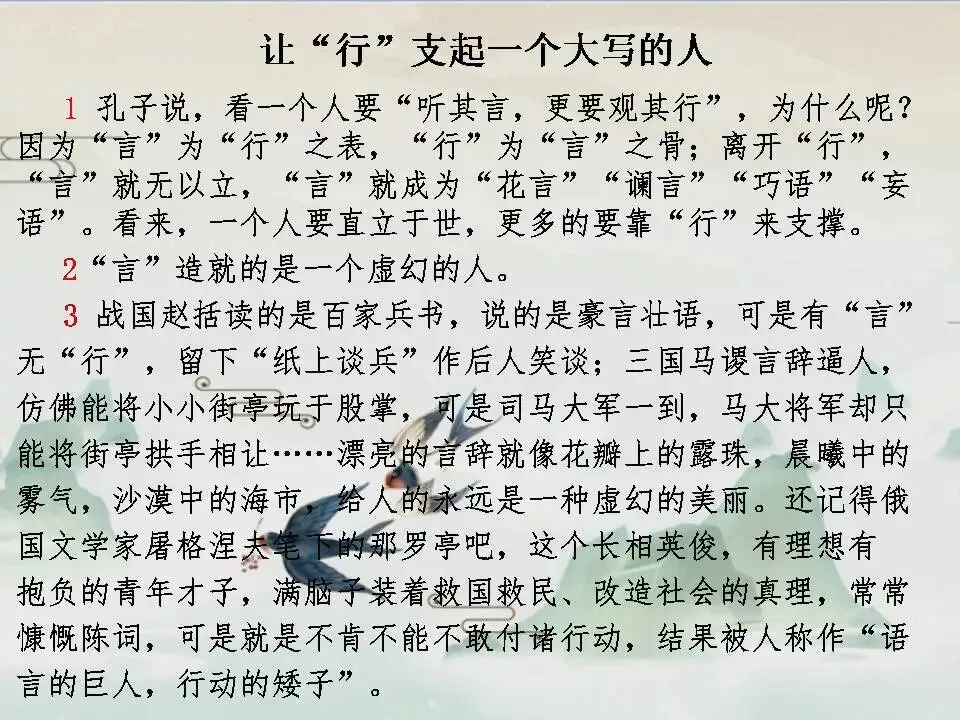 让“行”支起一个大写的人
1 孔子说，看一个人要“听其言，更要观其行”，为什么呢？
因为“言”为“行”之表，“行”为“言”之骨；离开“行”，
“言”就无以立，“言”就成为“花言”“谰言”“巧语”“妄
语”。看来，一个人要直立于世，更多的要靠“行”来支撑。
2“言”造就的是一个虚幻的人。
3 战国赵括读的是百家兵书，说的是豪言壮语，可是有“言”
无“行”，留下“纸上谈兵”作后人笑谈；三国马谡言辞逼人，
仿佛能将小小街亭玩于股掌，可是司马大军一到，马大将军却只
能将街亭拱手相让……漂亮的言辞就像花瓣上的露珠，晨曦中的
雾气，沙漠中的海市，给人的永远是一种虚幻的美丽。还记得俄
国文学家屠格涅夫笔下的那罗亭吧，这个长相英俊，有理想有
抱负的青年才子，满脑子装着救国救民、改造社会的真理，常常
慷慨陈词，可是就是不肯不能不敢付诸行动，结果被人称作“语
言的巨人，行动的矮子”。